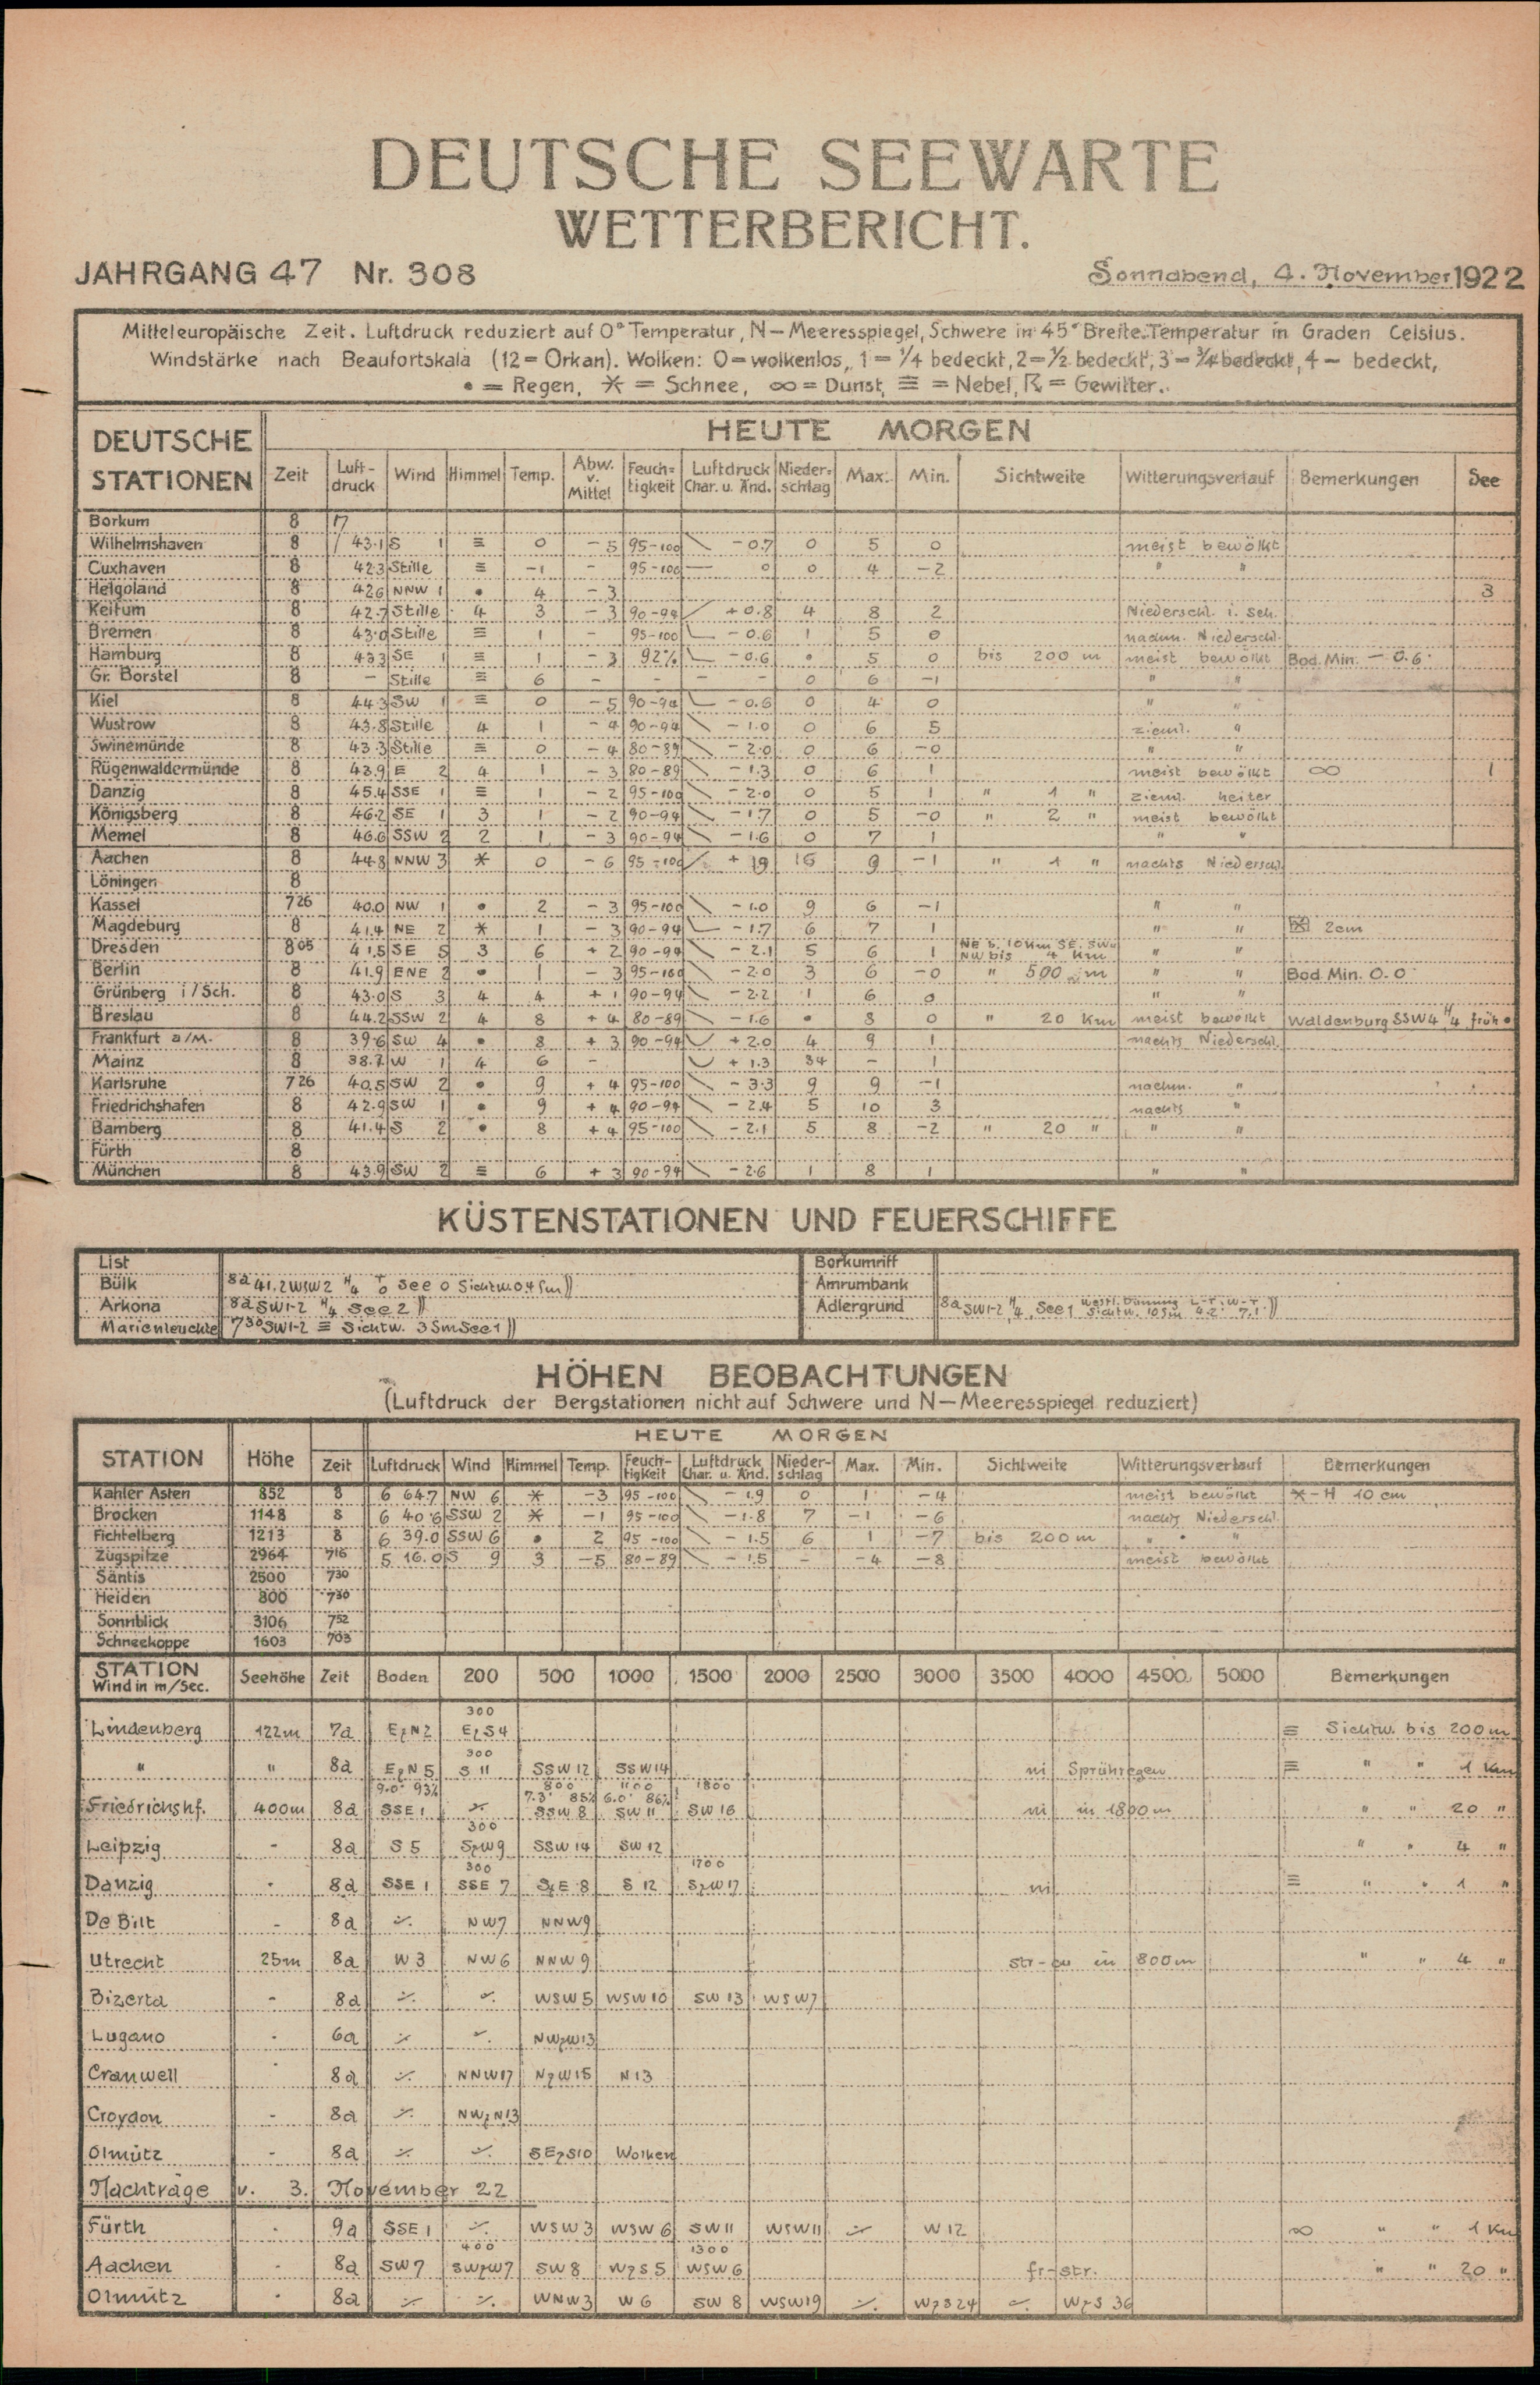 DEUTSCHE SEEWARTE
WETTERBERICHT.
JAHRGANG 47 Nr. 308 Sonnabend, 4. November 1922
Mitteleuropäische Zeit. Luftdruck reduziert auf 0° Temperatur, N–Meeresspiegel, Schwere in 45° Breite. Temperatur in Graden Celsius.
Windstärke nach Beaufortskala (12 = Orkan). Wolken: 0 = wolkenlos, 1 = 1/4 bedeckt, 2 = 1/2 bedeckt, 3 = 3/4 bedeckt, 4 – bedeckt,
• = Regen, ✶ = Schnee, ∞ = Dunst, ≡ = Nebel, ☈ = Gewitter.
DEUTSCHE STATIONEN HEUTE MORGEN
Zeit Luft-druck Wind Himmel Temp. Abw. v. Mittel Feuch-tigkeit Luftdruck Char. u. Änd. Nieder-schlag Max. Min. Sichtweite Witterungsverlauf Bemerkungen See
Borkum 8
Wilhelmshaven 8 43.1 S 1 ≡ 0 – 5 95–100 \ – 0.7 0 5 0 meist bewölkt
Cuxhaven 8 42.3 Stille ≡ –1 – 95–100 — 0 0 4 –2 " "
Helgoland 8 42.6 NNW 1 • 4 – 3 3
Keitum 8 42.7 Stille 4 3 – 3 90–94 / + 0.8 4 8 2 Niederschl. i. Sch.
Bremen 8 43.0 Stille ≡ 1 – 95–100 – 0.6 1 5 0 nachm. Niederschl.
Hamburg 8 43.3 SE 1 ≡ 1 – 3 92% – 0.6 • 5 0 bis 200 m meist bewölkt Bod. Min. – 0.6
Gr. Borstel 8 – Stille ≡ 6 – – – – 0 6 –1 " "
Kiel 8 44.3 SW 1 ≡ 0 – 5 90–94 – 0.6 0 4 0 " "
Wustrow 8 43.8 Stille 4 1 – 4 90–94 \ – 1.0 0 6 5 zieml. "
Swinemünde 8 43.3 Stille ≡ 0 – 4 80–89 \ – 2.0 0 6 –0 " "
Rügenwaldermünde 8 43.9 E 2 4 1 – 3 80–89 \ – 1.3 0 6 1 meist bewölkt ∞ 1
Danzig 8 45.4 SSE 1 ≡ 1 – 2 95–100 \ – 2.0 0 5 1 " 1 " zieml. heiter
Königsberg 8 46.2 SE 1 3 1 – 2 90–94 \ – 1.7 0 5 –0 " 2 " meist bewölkt
Memel 8 46.6 SSW 2 2 1 – 3 90–94 \ – 1.6 0 7 1 " "
Aachen 8 44.8 NNW 3 ✶ 0 – 6 95–100 / + 19 16 9 –1 " 1 " nachts Niederschl.
Löningen 8
Kassel 7 26 40.0 NW 1 • 2 – 3 95–100 \ – 1.0 9 6 –1 " "
Magdeburg 8 41.4 NE 2 ✶ 1 – 3 90–94 – 1.7 6 7 1 " " 2cm
Dresden 8 05 41.5 SE 5 3 6 + 2 90–94 \ – 2.1 5 6 1 NE b. 10 Km SE. SW u NW bis 4 Km " "
Berlin 8 41.9 ENE 2 • 1 – 3 95–100 \ – 2.0 3 6 –0 " 500 m " " Bod. Min. 0.0
Grünberg i/Sch. 8 43.0 S 3 4 4 + 1 90–94 \ – 2.2 1 6 0 " "
Breslau 8 44.2 SSW 2 4 8 + 4 80–89 \ – 1.6 • 8 0 " 20 Km meist bewölkt Waldenburg SSW 4 H/4 früh •
Frankfurt a/M. 8 39.6 SW 4 • 8 + 3 90–94 + 2.0 4 9 1 nachts Niederschl.
Mainz 8 38.7 W 1 4 6 – + 1.3 34 – 1
Karlsruhe 7 26 40.5 SW 2 • 9 + 4 95–100 \ – 3.3 9 9 –1 nachm. "
Friedrichshafen 8 42.9 SW 1 • 9 + 4 90–94 \ – 2.4 5 10 3 nachts "
Bamberg 8 41.4 S 2 • 8 + 4 95–100 \ – 2.1 5 8 –2 " 20 " " "
Fürth 8
München 8 43.9 SW 2 ≡ 6 + 3 90–94 \ – 2.6 1 8 1 " "
KÜSTENSTATIONEN UND FEUERSCHIFFE
List Borkumriff
Bülk 8a 41.2 WSW 2 H/4 T/0 See 0 Sichtw. 0.4 Sm)) Amrumbank
Arkona 8a SW 1-2 H/4 See 2 )) Adlergrund 8a SW 1-2 H/4, See 1 westl. Dünung Sichtw. 10 Sm L-T. W-T 4.2° 7.1° ))
Marienleuchte 7 30 SW 1-2 ≡ Sichtw. 3 Sm See 1 ))
HÖHEN BEOBACHTUNGEN
(Luftdruck der Bergstationen nicht auf Schwere und N–Meeresspiegel reduziert)
STATION Höhe HEUTE MORGEN
Zeit Luftdruck Wind Himmel Temp. Feuch-tigkeit Luftdruck Char. u. Änd. Nieder-schlag Max. Min. Sichtweite Witterungsverlauf Bemerkungen
Kahler Asten 852 8 6 64.7 NW 6 ✶ –3 95–100 \ – 1.9 0 1 –4 meist bewölkt ✶–H 10 cm
Brocken 1148 8 6 40.6 SSW 2 ✶ –1 95–100 \ – 1.8 7 –1 –6 nachts Niederschl.
Fichtelberg 1213 8 6 39.0 SSW 6 • 2 95–100 \ – 1.5 6 1 –7 bis 200 m " • "
Zugspitze 2964 7 16 5 16.0 S 9 3 –5 80–89 \ – 1.5 – –4 –8 meist bewölkt
Säntis 2500 7 30
Heiden 800 7 30
Sonnblick 3106 7 52
Schneekoppe 1603 7 03
STATION Wind in m/Sec. Seehöhe Zeit Boden 200 500 1000 1500 2000 2500 3000 3500 4000 4500 5000 Bemerkungen
300
Lindenberg 122m 7a EzN 2 EzS 4 ≡ Sichtw. bis 200 m
300
" " 8a EzN 5 S 11 SSW 12 SSW 14 ni Sprühregen ≡ " " 1 Km
9.0° 93% 800 7.3° 85% 1100 6.0° 86% 1800
Friedrichshf. 400m 8a SSE 1 ⁒ SSW 8 SW 11 SW 16 ni in 1800 m " " 20 "
300
Leipzig - 8a S 5 SzW 9 SSW 14 SW 12 " " 4 "
300 1700
Danzig - 8a SSE 1 SSE 7 SzE 8 S 12 SzW 17 ni ≡ " " 1 "
De Bilt - 8a ⁒ NW 7 NNW 9
Utrecht 25m 8a W 3 NW 6 NNW 9 str-cu in 800 m " " 4 "
Bizerta - 8a ⁒ ⁒ WSW 5 WSW 10 SW 13 WSW 7
Lugano - 6a ⁒ ⁒ NWzW 13
Cranwell 8a ⁒ NNW 17 NzW 15 N 13
Croydon - 8a ⁒ NWzN 13
Olmütz - 8a ⁒ ⁒ SEzS 10 Wolken
Nachträge v. 3. November 22
Fürth - 9a SSE 1 ⁒ WSW 3 WSW 6 SW 11 WSW 11 ⁒ W 12 ∞ " " 1 Km
400 1300
Aachen - 8a SW 7 SWzW 7 SW 8 WzS 5 WSW 6 fr-str. " " 20 "
Olmütz - 8a ⁒ ⁒ WNW 3 W 6 SW 8 WSW 19 ⁒ WzS 24 ⁒ WzS 36